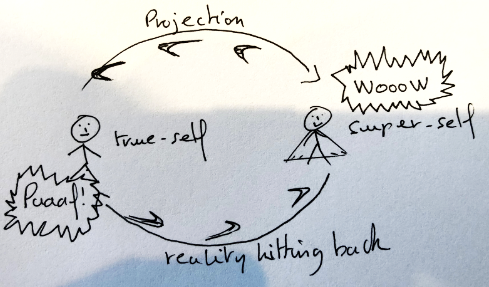 Projection
WOOOW
true-self
super-self
Puaaf!
reality hitting back